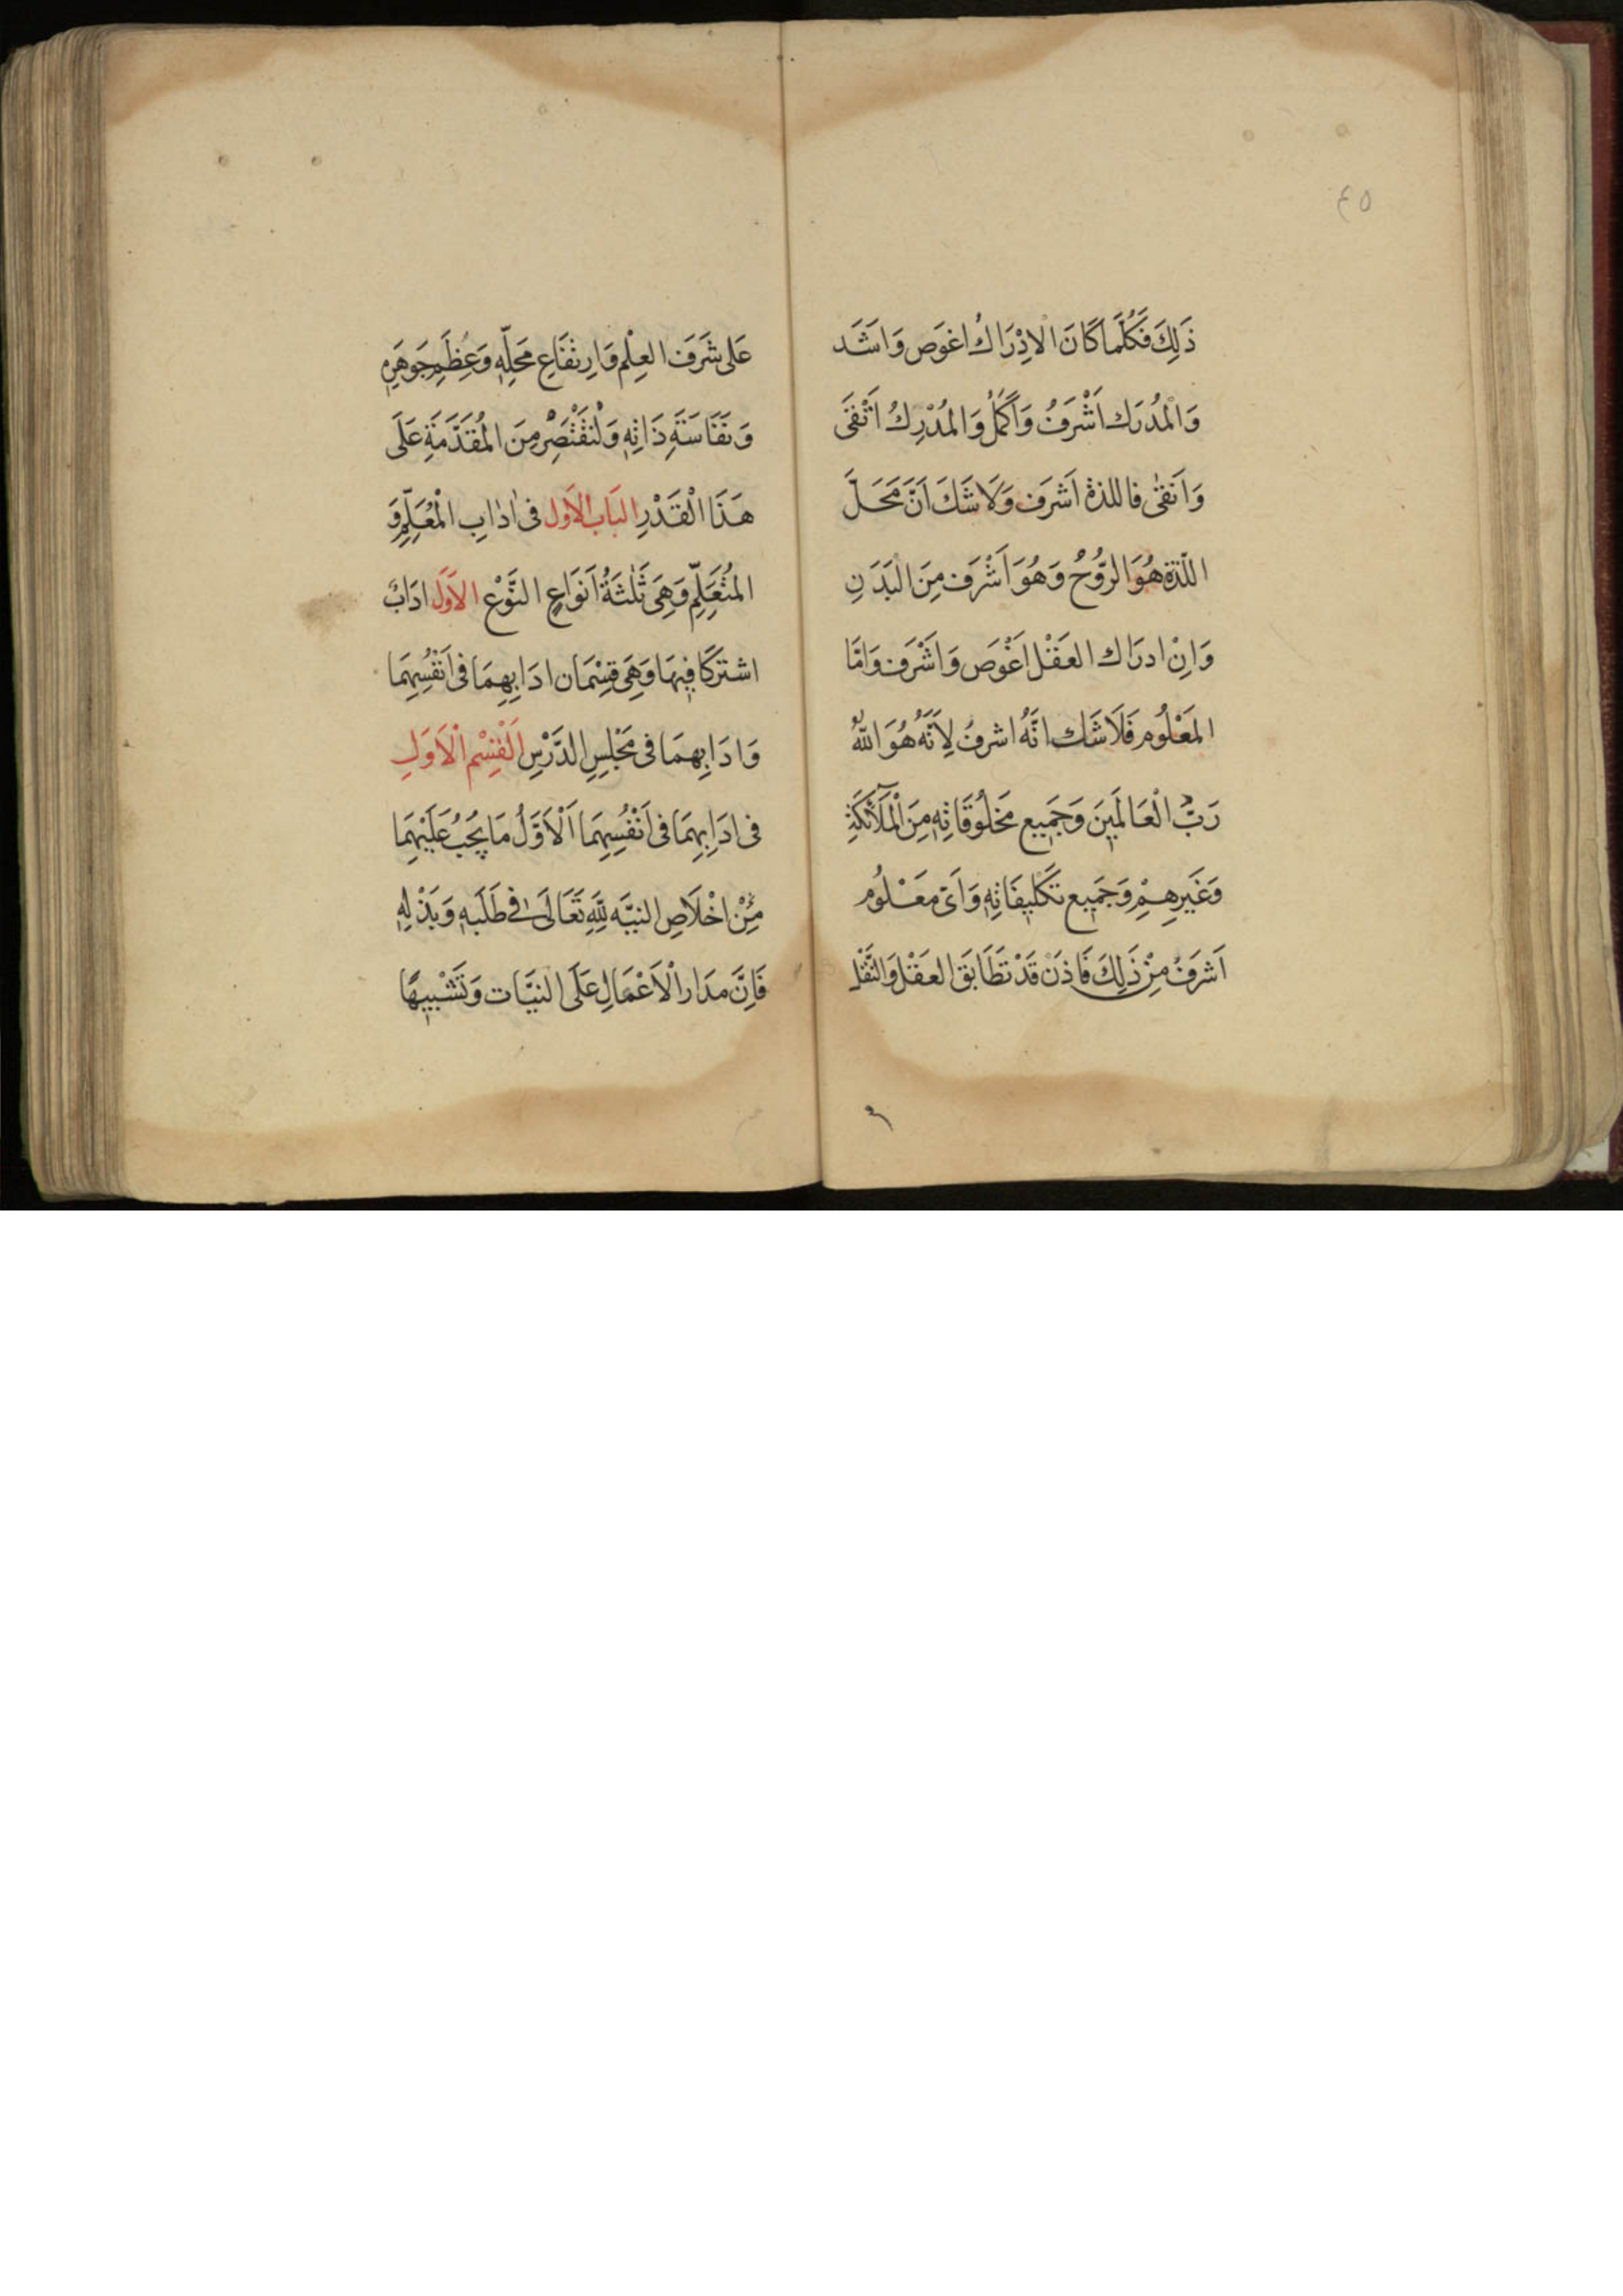 ٤٥
ذَلِكَ فَكُلَّمَا كَانَ الْاِدْرَاكُ اغوَص وَاشَدّ
وَالْمُدرَك اَشْرَفُ وَاَكمَلُ وَالمُدْرِكُ اَتْقَى
وَاَنقٰى فاللذة اَشرَف وَلَا شَكَ اَنَّ مَحَلَّ
اللّذة هُوَ الرُّوُحُ وَهُوَ اَشْرَف مِنَ الْبَدَنِ
وَاِنْ ادرَاك العَقْل اَغْوَص وَاَشْرَف وَامّا
المَعْلُوم فَلَا شَك انَّهُ اشرفُ لِاَنَّهُ هُوَ اللّٰهُ
رَبّ الْعَالَمينَ وَجَميع مَخلُوقَاتِهِ مِنَ الْمَلَائكَةِ
وَغَيرِهِمْ وَجَميع تَكليفَاتِهِ وَاَىّ مَعْلُوم
اَشرَفُ مِنْ ذَلِكَ فَاذَنْ قَدْ تَطَابَقَ العَقْل وَالنَّقْل
عَلى شَرَفَ العِلْم وَارِتفَاعِ مَحَلِّهِ وَعِظَمِ جَوهَرِهِ
وَنَفَاسَةِ ذَاتِهِ وَلْنقْتَصِرْ مِنَ المُقَدَّمَةِ عَلَى
هَذَا الْقَدْرِ البَاب الاَول فى ادٰابِ الْمُعَلِّمِ وَ
المُتَعَلِّمِ وَهِىَ ثَلٰثَةُ اَنوَاعٍ النَّوْع الاَوَّل ادَابٌ
اشتَرَكَا فِيهَا وَهِىَ قِسْمَان ادَابِهِمَا فى اَنفُسِهِمَا
وَادَابِهِمَا فى مَجْلِسِ الدَّرْسِ اَلْقِسْم الْاَوَلِ
فى ادَابِهِمَا فى اَنْفُسِهِمَا اَلْاَوَّلُ مَا يَجُبُ عَلَيْهِمَا
مِنْ اخْلَاصِ النيَّه لِلّٰهِ تَعَالَى فى طَلَبِهِ وَبَذْلِهِ
فَاِنَّ مدَار الْاَعْمَالِ عَلَى النيَّات وَتَشْبيهًا